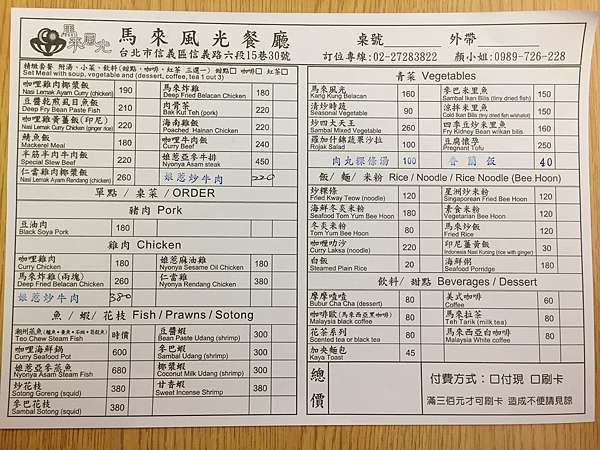 馬來風光
馬來風光餐廳
台北市信義區信義路六段15巷30號
桌號
外帶
訂位專線:02-27283822
顏小姐:0989-726-228
精緻套餐 附湯、小菜、飲料(甜點、咖啡、紅茶 三選一) 甜點□ 咖啡□ 紅茶□
Set Meal with soup, vegetable and (dessert, coffee, tea 1 out 3)
咖哩雞肉椰漿飯 190
Nasi Lemak Curry Chicken
豆醬乾煎虱目魚飯 210
Deep Fry Bean Paste Fish
咖哩雞黃薑飯(印尼) 220
Nasi Lemak Curry Chicken (ginger rice)
鯖魚飯 180
Mackerel Meal
羊筋半牛肉牛肉飯 220
Special Slew Beef
仁當雞肉椰漿飯 260
Nasi Lemak Ayam Rendang (chicken)
馬來炸雞 180
Deep Fried Belacan Chicken
肉骨茶 220
Bak Kut Teh (pork)
海南雞飯 220
Poached Hainan Chicken
咖哩牛肉飯 240
Curry Beef
娘惹亞參牛排 450
Nyonya Asam steak
娘惹炒牛肉 220
單點 / 桌菜 / ORDER
豬肉 Pork
豆油肉 180
Black Soya Pork
雞肉 Chicken
咖哩雞肉 180
Curry Chicken
馬來炸雞(兩塊) 260
Deep Fried Belacan Chicken
娘惹炒牛肉 380
娘惹麻油雞 180
Nyonya Sesame Oil Chicken
仁當雞 380
Nyonya Rendang Chicken
魚 / 蝦/ 花枝 Fish / Prawns / Sotong
時價
Teo Chew Steam Fish
咖哩海鮮鍋 600
Curry Seafood Pot
娘惹亞參蒸魚 680
Nyonya Asam Steam Fish
炒花枝 380
Sotong Goreng (squid)
參巴花枝 380
Sambal Sotong (squid)
豆醬蝦 300
Bean Paste Udang (shrimp)
參巴蝦 300
Sambal Udang (shrimp)
椰漿蝦 300
Coconut Milk Udang (shrimp)
甘香蝦 380
Sweet Incense Shrimp
青菜 Vegetables
馬來風光 160
Kang Kung Belacan
清炒時蔬 90
Seasonal Vegetable
炒四大天王 260
Sambal Mixed Vegetable
羅加什錦蔬果沙拉 100
Rojak Salad
肉丸粿條湯 100
參巴米里魚 150
Sambal Ikan Bilis (tiny dried fish)
涼拌米里魚 150
Cold Ikan Bilis (tiny dried fish w/shallot)
四季豆炒米里魚 150
Fry Kidney Bean w/ikan bilis
豆腐懷孕 260
Pregnant Tofu
香蘭飯 40
飯/ 麵/ 米粉 Rice / Noodle / Rice Noodle (Bee Hoon)
炒粿條 120
Fried Kway Teow (noodle)
海鮮冬炎米粉 180
Seafood Tom Yum Bee Hoon
冬炎米粉 80
Tom Yum Bee Hoon
咖哩叻沙 220
Curry Laksa (noodle)
白飯 20
Steamed Plain Rice
星洲炒米粉 120
Singaporean Fried Bee Hoon
素食米粉 120
Vegetarian Bee Hoon
馬來炒飯 120
Fried Rice
印尼薑黃飯 30
Indonesia Nasi Kuning (rice with ginger)
海鮮粥 180
Seafood Porridge
飲料/ 甜點 Beverages / Dessert
摩摩喳喳 80
Bubur Cha Cha (dessert)
咖啡歐(馬來西亞黑咖啡) 80
Malaysia black coffee
花茶系列 80
Scented tea or black tea
加央麵包 45
Kaya Toast
美式咖啡 60
Coffee
馬來拉茶 80
Teh Tarik (milk tea)
馬來西亞白咖啡 80
Malaysia White coffee
總價
付費方式：□付現 □刷卡
滿三佰元才可刷卡 造成不便請見諒